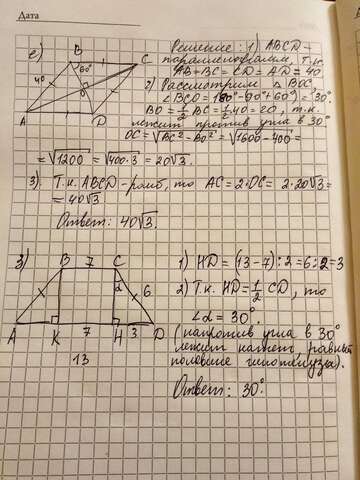 Дата
е)
B
C
60°
40
O
A
D
Решение: 1) ABCD -
параллелограмм, т.к.
AB=BC=CD=AD=40
2) Рассмотрим △ BOC,
∠BCO = 180°-(90°+60°)=30°.
BO = 1/2 BC = 1/2·40=20, т.к.
лежит против угла в 30°
OC=√BC²-BO² = √1600-400 =
= √1200 = √400·3 = 20√3.
3). Т.к. ABCD - ромб, то AC=2·OC= 2·20√3=
= 40√3
Ответ: 40√3.
з)
B 7 C
α
6
A K 7 H 3 D
13
1) HD = (13-7):2=6:2=3
2) Т.к. HD=1/2 CD, то
∠α = 30°.
(напротив угла в 30°
лежит катет, равный
половине гипотенузы).
Ответ: 30°.